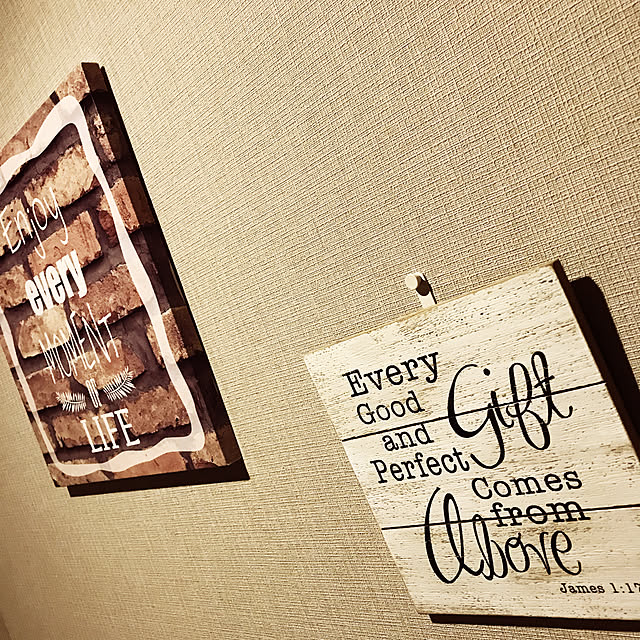 Enjoy
every
MOMENT
OF
LIFE
Every
Good
and
Perfect
Gift
Comes
from
Above
James 1:17